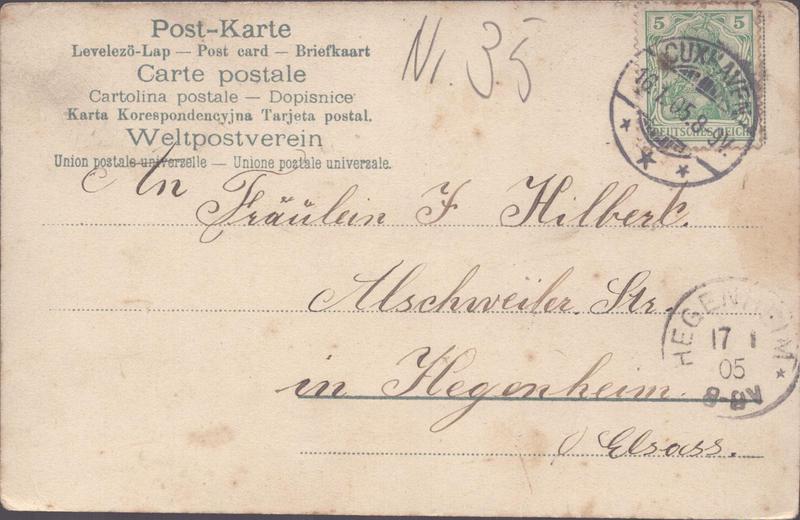 Post-Karte
Levelezö-Lap — Post card — Briefkaart
Carte postale
Cartolina postale — Dopisnice
Karta Korespondencyjna Tarjeta postal.
Weltpostverein
Union postale universelle — Unione postale universale.
Nr. 35
5 5
DEUTSCHES REICH
CUXHAVEN
16.1.05.8-9V.
An
Fräulein F Hilberk.
Alschweiler. Str.
in Hegenheim.
Elsass.
HEGENHEIM
17 1
05